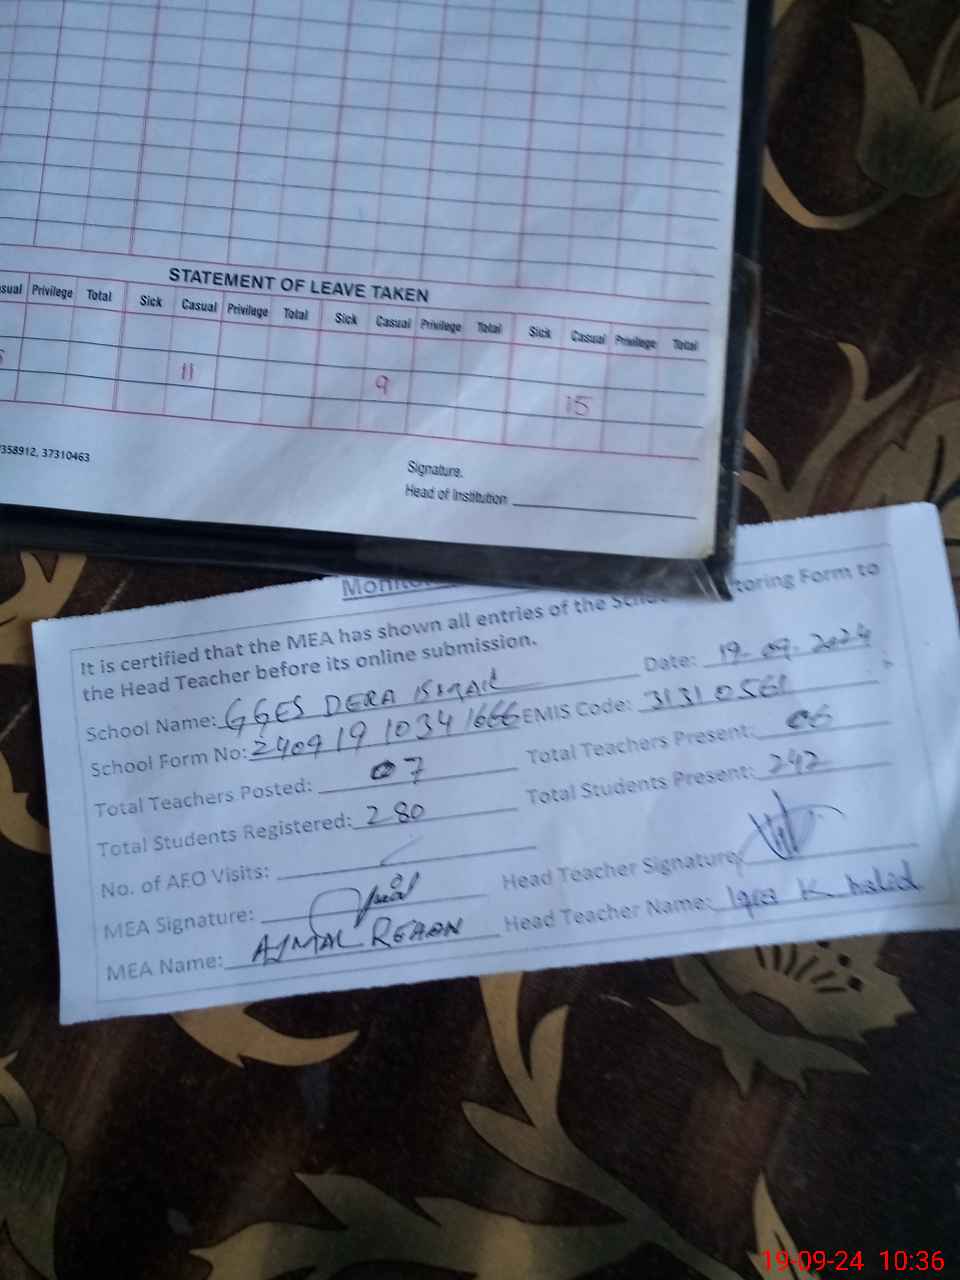 STATEMENT OF LEAVE TAKEN
Privilege Total Sick Casual Privilege Total Sick Casual Privilege Total Sick Casual Privilege Total
11 9 15
358912, 37310463
Signature.
Head of Institution
It is certified that the MEA has shown all entries of the Form to
the Head Teacher before its online submission.
School Name: GGES DERA ISMAIL Date: 19-09-2024
School Form No: 2409191034 1666 EMIS Code: 31310561
Total Teachers Posted: 07 Total Teachers Present: 06
Total Students Registered: 280 Total Students Present: 242
No. of AEO Visits:
MEA Signature: Head Teacher Signature
MEA Name: AJMAL Head Teacher Name: Iqra Khalid
19-09-24 10:36